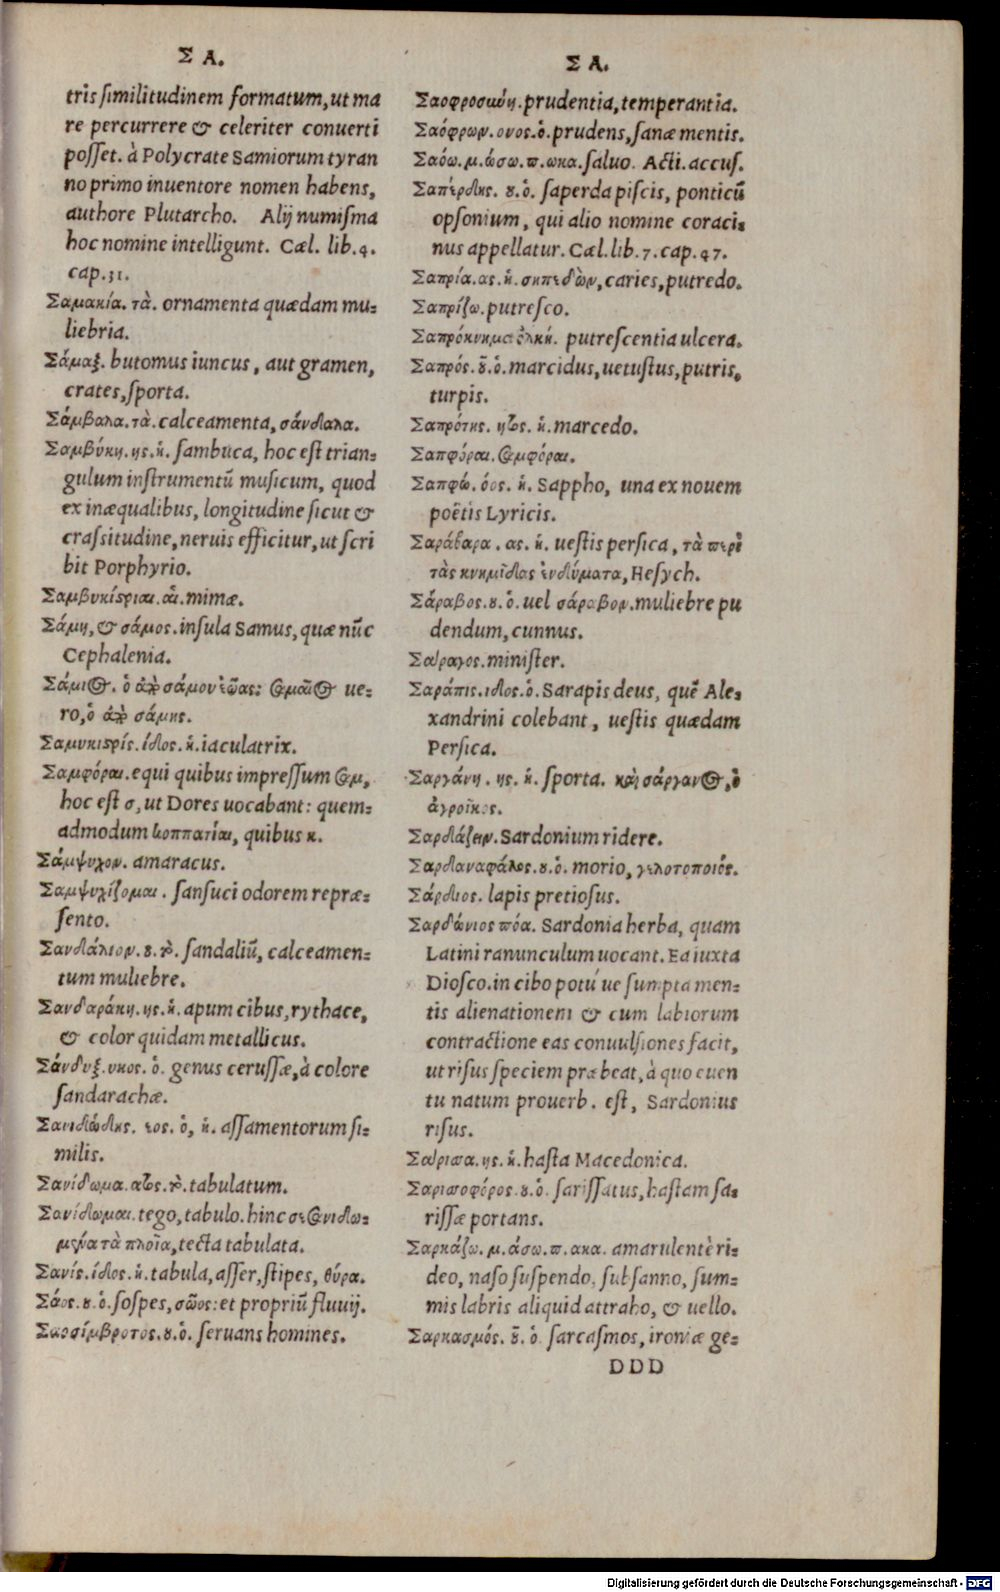 Σ Α.
tris similitudinem formatum, ut ma
re percurrere & celeriter conuerti
posset. à Polycrate Samiorum tyran
no primo inuentore nomen habens,
authore Plutarcho. Alij numisma
hoc nomine intelligunt. Cæl. lib.4.
cap.31.
Σαμακία. τὰ. ornamenta quædam mu=
liebria.
Σάμαξ. butomus iuncus, aut gramen,
crates, sporta.
Σάμβαλα. τὰ. calceamenta, σάνδαλα.
Σαμβύκη. ης. ἡ. sambuca, hoc est trian=
gulum instrumentũ musicum, quod
ex inæqualibus, longitudine sicut &
crassitudine, neruis efficitur, ut scri
bit Porphyrio.
Σαμβυκίστριαι. αἱ. mimæ.
Σάμη, & σάμος. insula Samus, quæ nũc
Cephalenia.
Σάμιος. ὁ ἀπὸ σάμου ἰῶας: σαμαῖος ue=
ro, ὁ ἀπὸ σάμης.
Σαμυκιστρίς. ίδος. ἡ. iaculatrix.
Σαμφόραι. equi quibus impressum σαμ,
hoc est σ, ut Dores uocabant: quem=
admodum κοππατίαι, quibus κ.
Σάμψυχον. amaracus.
Σαμψυχίζομαι. sansuci odorem repræ=
sento.
Σανδάλιον. ου. τὸ. sandaliũ, calceamen=
tum muliebre.
Σανδαράκη. ης. ἡ. apum cibus, rythace,
& color quidam metallicus.
Σάνδυξ. υκος. ὁ. genus cerussæ, à colore
sandarachæ.
Σανιδώδης. εος. ὁ, ἡ. assamentorum si=
milis.
Σανίδωμα. ατος. τὸ. tabulatum.
Σανίδωμαι. tego, tabulo. hinc σεσανιδω=
μένα τὰ πλοῖα, tecta tabulata.
Σανίς. ίδος. ἡ. tabula, asser, stipes, θύρα.
Σάος. ου. ὁ. sospes, σῶος: et propriũ fluuij.
Σαοσίμβροτος. ου. ὁ. seruans homines.
Σ Α.
Σαοφροσύνη. prudentia, temperantia.
Σαόφρων. ονος. ὁ. prudens, sanæ mentis.
Σαόω. μ. ώσω. π. ωκα. saluo. Acti. accus.
Σαπέρδης. ου. ὁ. saperda piscis, ponticũ
opsonium, qui alio nomine coraci=
nus appellatur. Cæl. lib. 7. cap. 47.
Σαπρία. ας. ἡ. σηπεδὼν, caries, putredo.
Σαπρίζω. putresco.
Σαπρόκνημα ἑλκη. putrescentia ulcera.
Σαπρός. οῦ. ὁ. marcidus, uetustus, putris,
turpis.
Σαπρότης. ητος. ἡ. marcedo.
Σαπφόραι. σαμφόραι.
Σαπφώ. όος. ἡ. Sappho, una ex nouem
poëtis Lyricis.
Σαράβαρα. ας. ἡ. uestis persica, τὰ περὶ
τὰς κνημῖδας ἐνδύματα, Hesych.
Σάραβος. ου. ὁ. uel σάραβον. muliebre pu
dendum, cunnus.
Σαύραγος. minister.
Σαράπις. ιδος. ὁ. Sarapis deus, quẽ Ale=
xandrini colebant, uestis quædam
Persica.
Σαργάνη. ης. ἡ. sporta. καὶ σάργανος, ὁ
ἀγροῖκος.
Σαρδιάζειν. Sardonium ridere.
Σαρδαναφάλος. ου. ὁ. morio, γελοτοποιός.
Σάρδιος. lapis pretiosus.
Σαρδώνιος πόα. Sardonia herba, quam
Latini ranunculum uocant. Ea iuxta
Diosco. in cibo potú ue sumpta men=
tis alienationem & cum labiorum
contractione eas conuulsiones facit,
ut risus speciem præbeat, à quo euen
tu natum prouerb. est, Sardonius
risus.
Σάρισσα. ης. ἡ. hasta Macedonica.
Σαρισοφόρος. ου. ὁ. sarissatus, hastam sa=
rissæ portans.
Σαρκάζω. μ. άσω. π. ακα. amarulentè ri=
deo, naso suspendo, subsanno, sum=
mis labris aliquid attraho, & uello.
Σαρκασμός. οῦ. ὁ. sarcasmos, ironiæ ge=
DDD
Digitalisierung gefördert durch die Deutsche Forschungsgemeinschaft - DFG